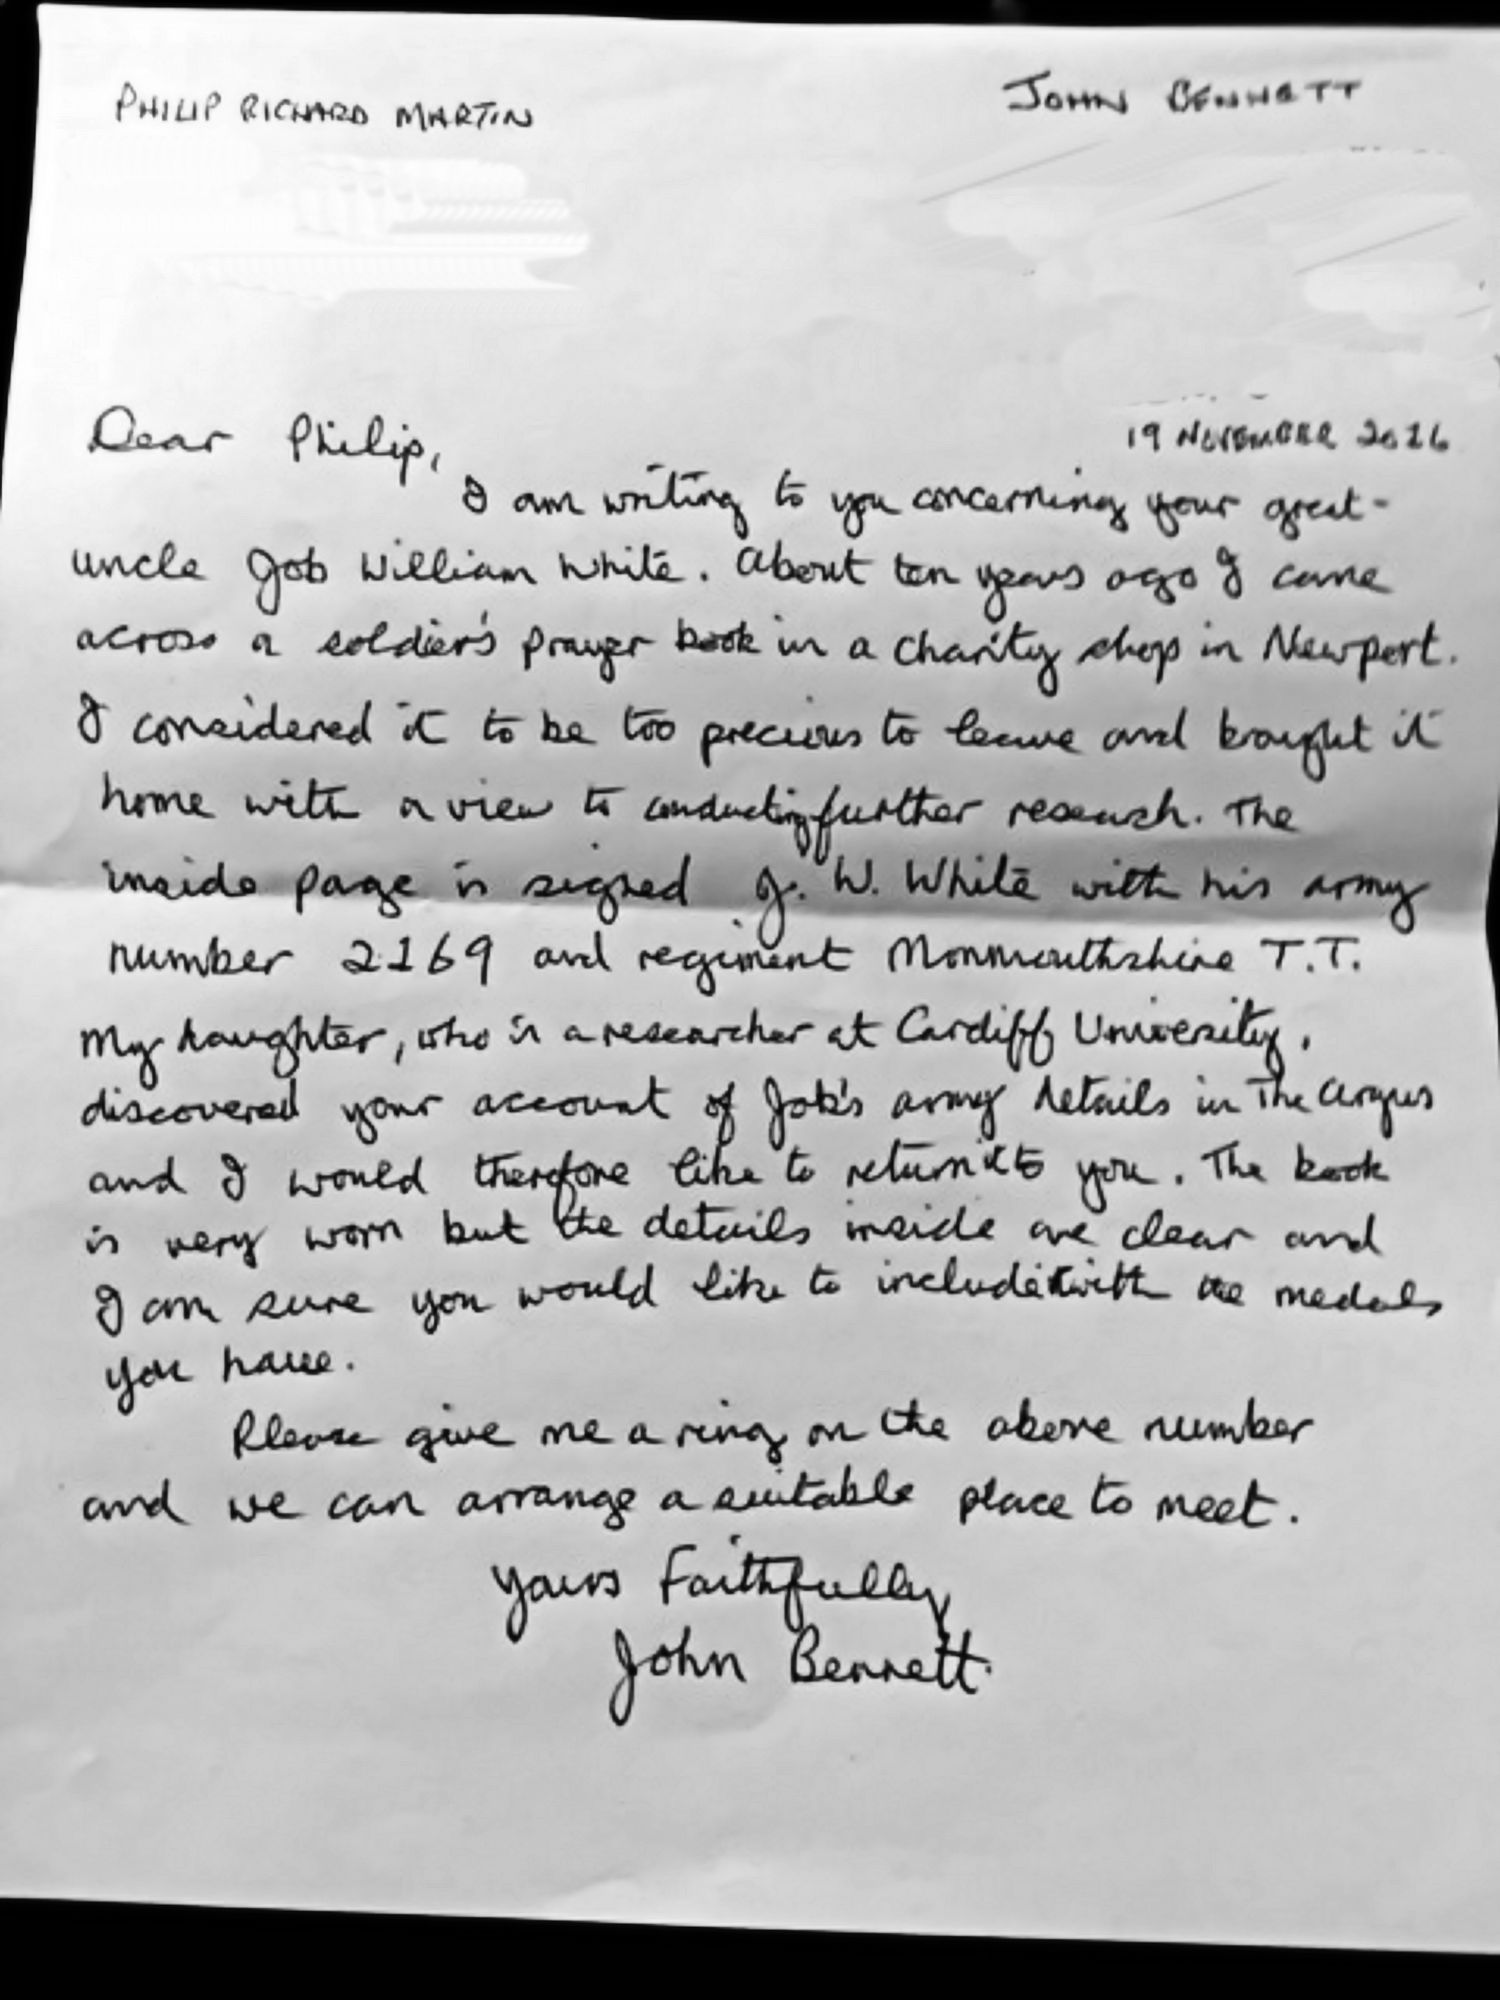 PHILIP RICHARD MARTIN
JOHN BENNETT
19 NOVEMBER 2016
Dear Philip,
I am writing to you concerning your great-
uncle Job William White. About ten years ago I came
across a soldier's prayer book in a charity shop in Newport.
I considered it to be too precious to leave and brought it
home with a view to conducting further research. The
inside page is signed J. W. White with his army
number 2169 and regiment Monmouthshire T.T.
My daughter, who is a researcher at Cardiff University,
discovered your account of Job's army details in The Argus
and I would therefore like to return it to you. The book
is very worn but the details inside are clear and
I am sure you would like to include it with the medals
you have.
Please give me a ring on the above number
and we can arrange a suitable place to meet.
Yours Faithfully
John Bennett.